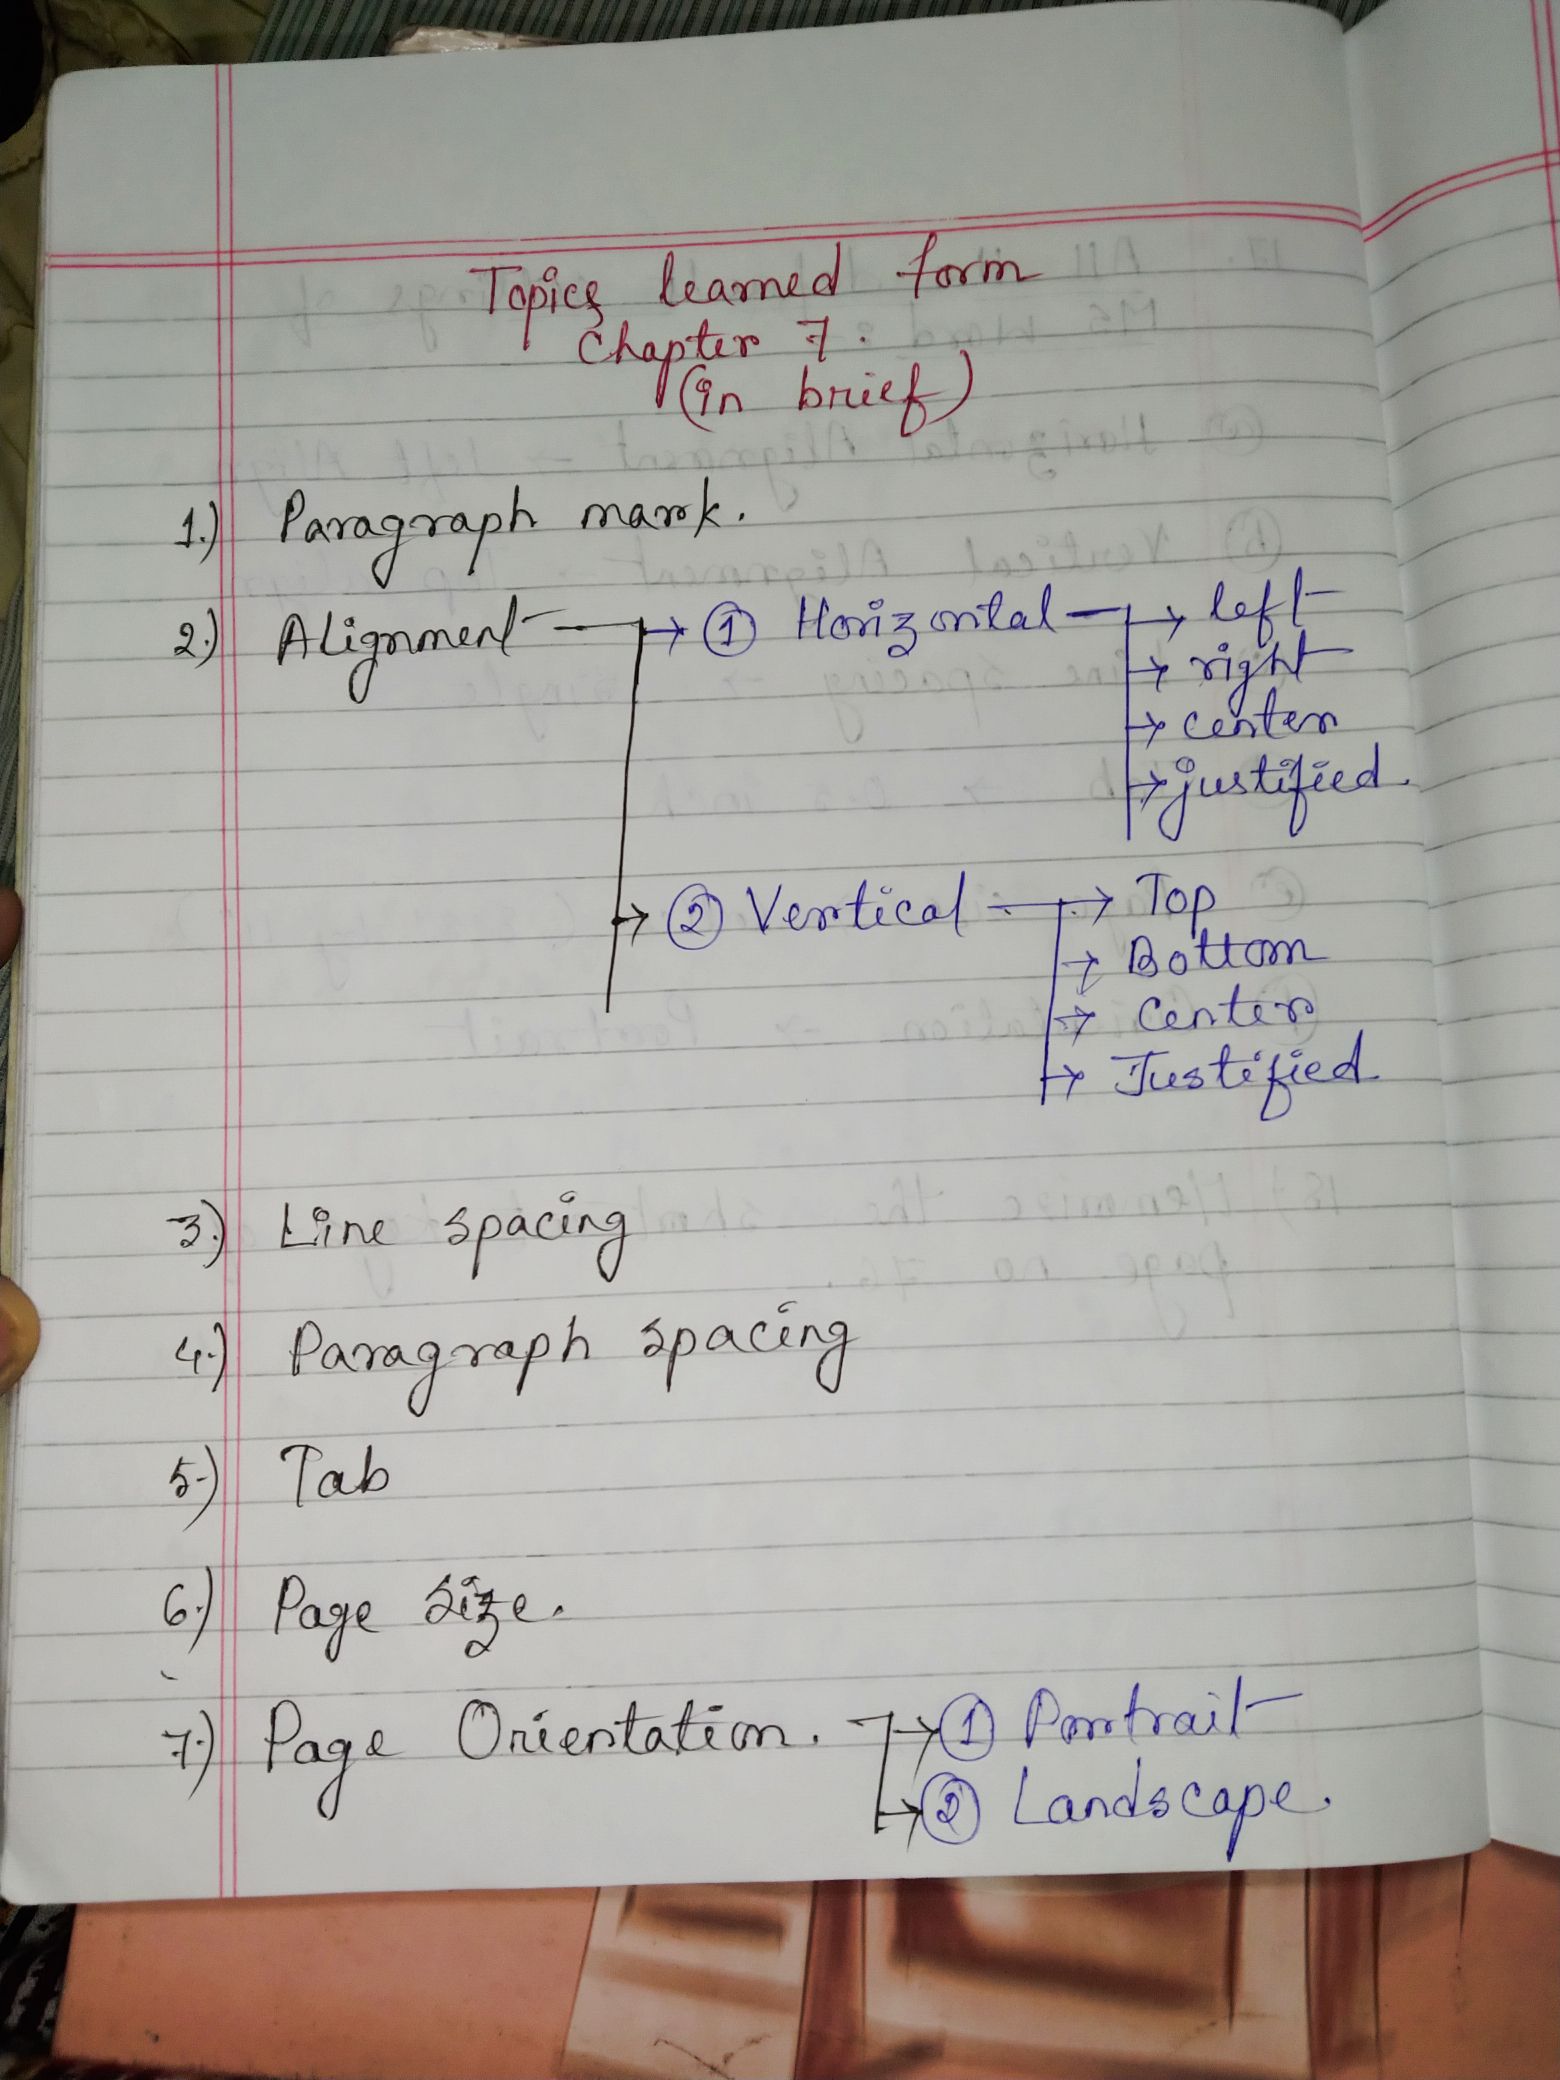 Topics learned form
Chapter 7:
(in brief)
1.) Paragraph mark.
2.) Alignment → ① Horizontal → left
→ right
→ center
→ justified.
→ ② Vertical → Top
→ Bottom
→ Center
→ Justified
3.) Line spacing
4.) Paragraph spacing
5.) Tab
6.) Page size.
7.) Page Orientation. → ① Portrait
→ ② Landscape.